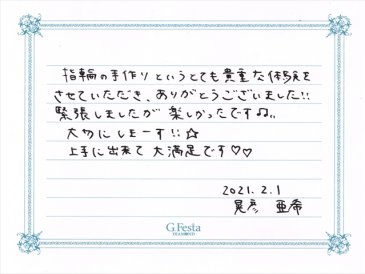 指輪の手作りというとても貴重な体験を
させていただき、ありがとうございました!!
緊張しましたが 楽しかったです♫
大切にしまーす!!☆
上手に出来て 大満足です♡♡
2021.2.1
晃彦 亜希
G.Festa